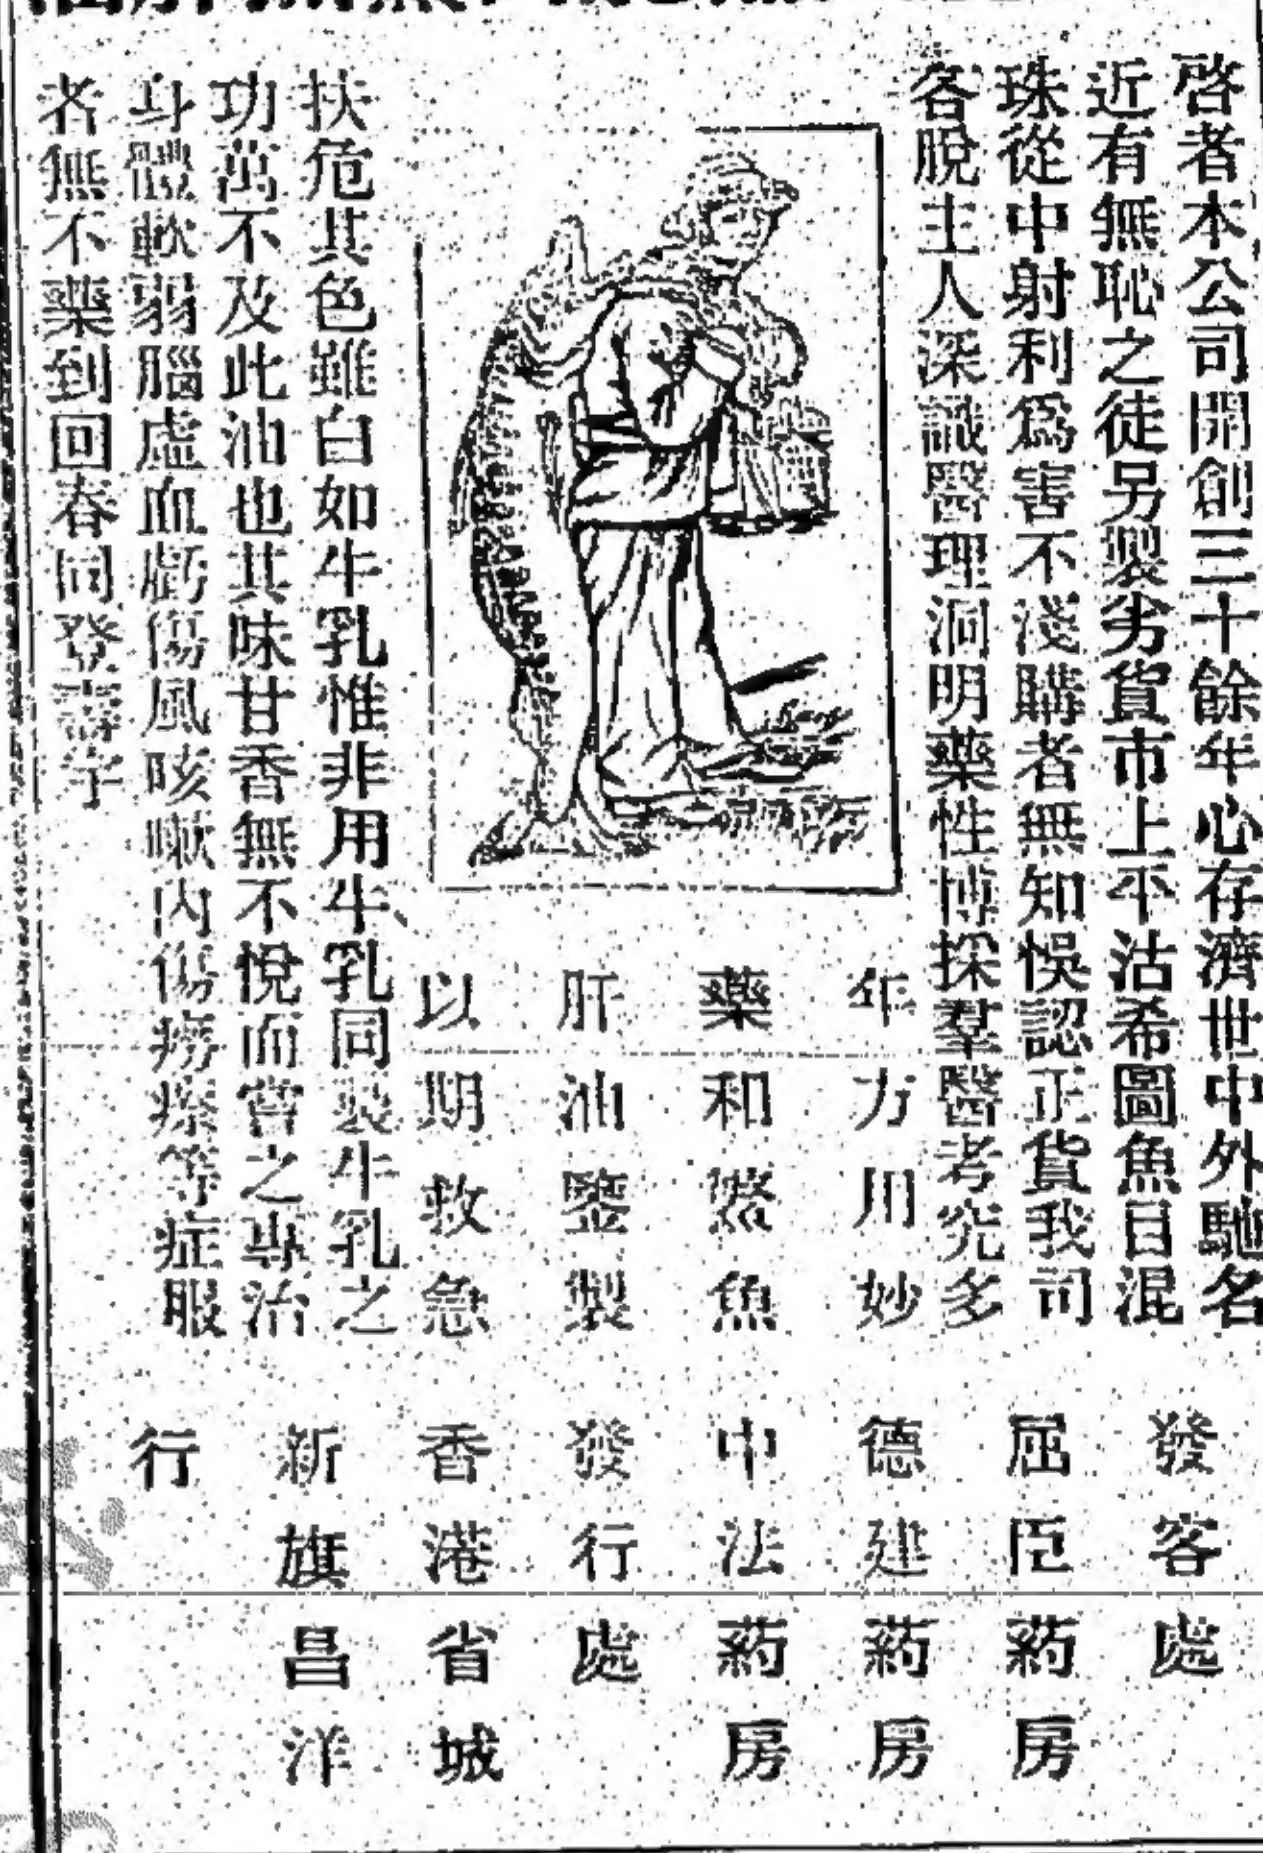 啓者本公司開創三十餘年心存濟世中外馳名
近有無恥之徒另製劣貨市上平沽希圖魚目混
珠從中射利爲害不淺購者無知悞認正貨我司
客脫主人深識醫理洞明藥性博採羣醫考究多
年方用妙
藥和鰵魚
肝油鑒製
以期救急
扶危其色雖白如牛乳惟非用牛乳同製牛乳之
功萬不及此油也其味甘香無不悅而嘗之專治
身體軟弱腦虛血虧傷風咳嗽內傷癆瘵等症服
者無不藥到回春同登壽宇
發客處
屈臣葯房
德建葯房
中法葯房
發行處
香港省城
新旗昌洋
行